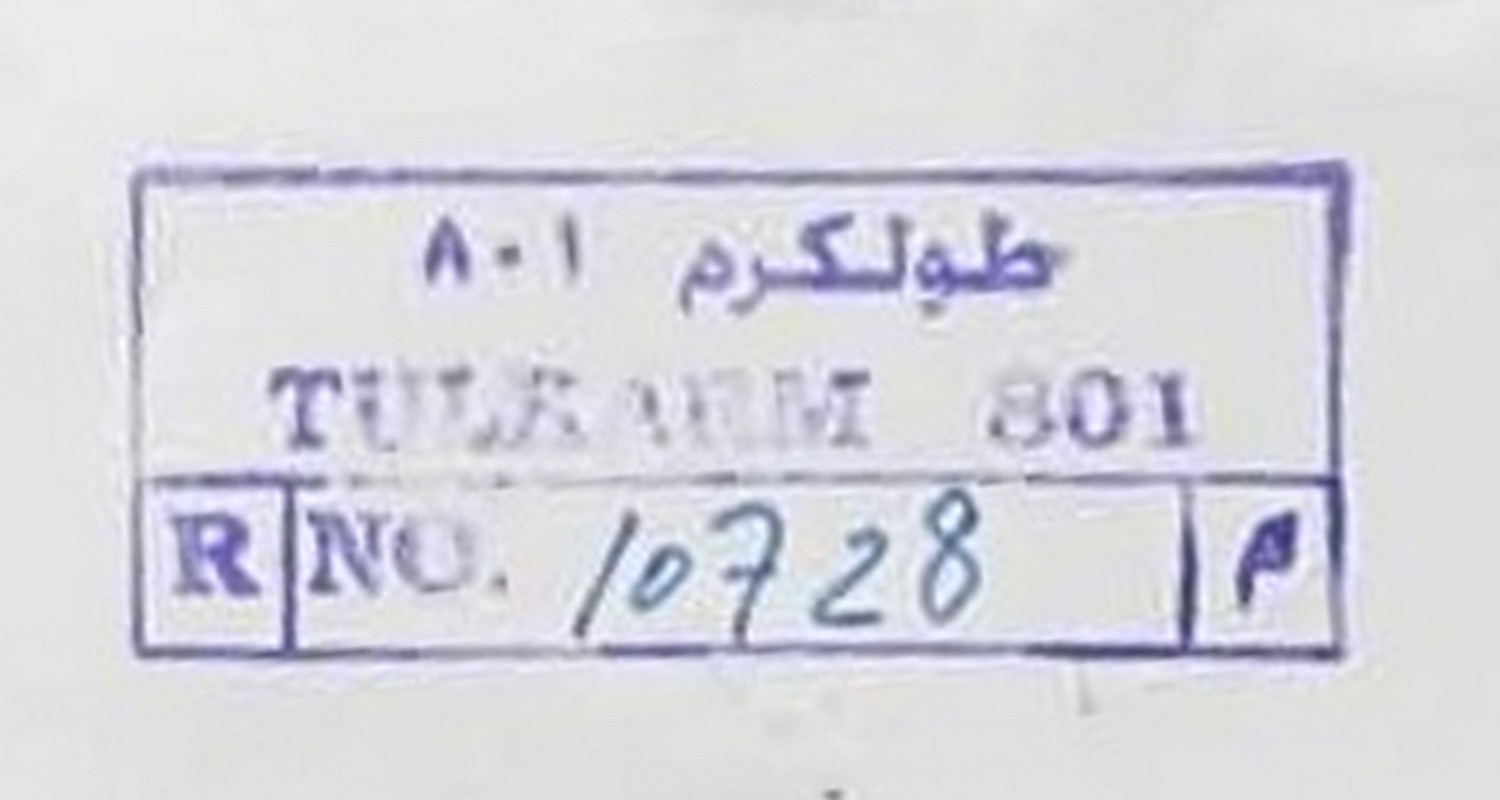 طولكرم ٨٠١
TULKAREM 801
R NO. 10728 م